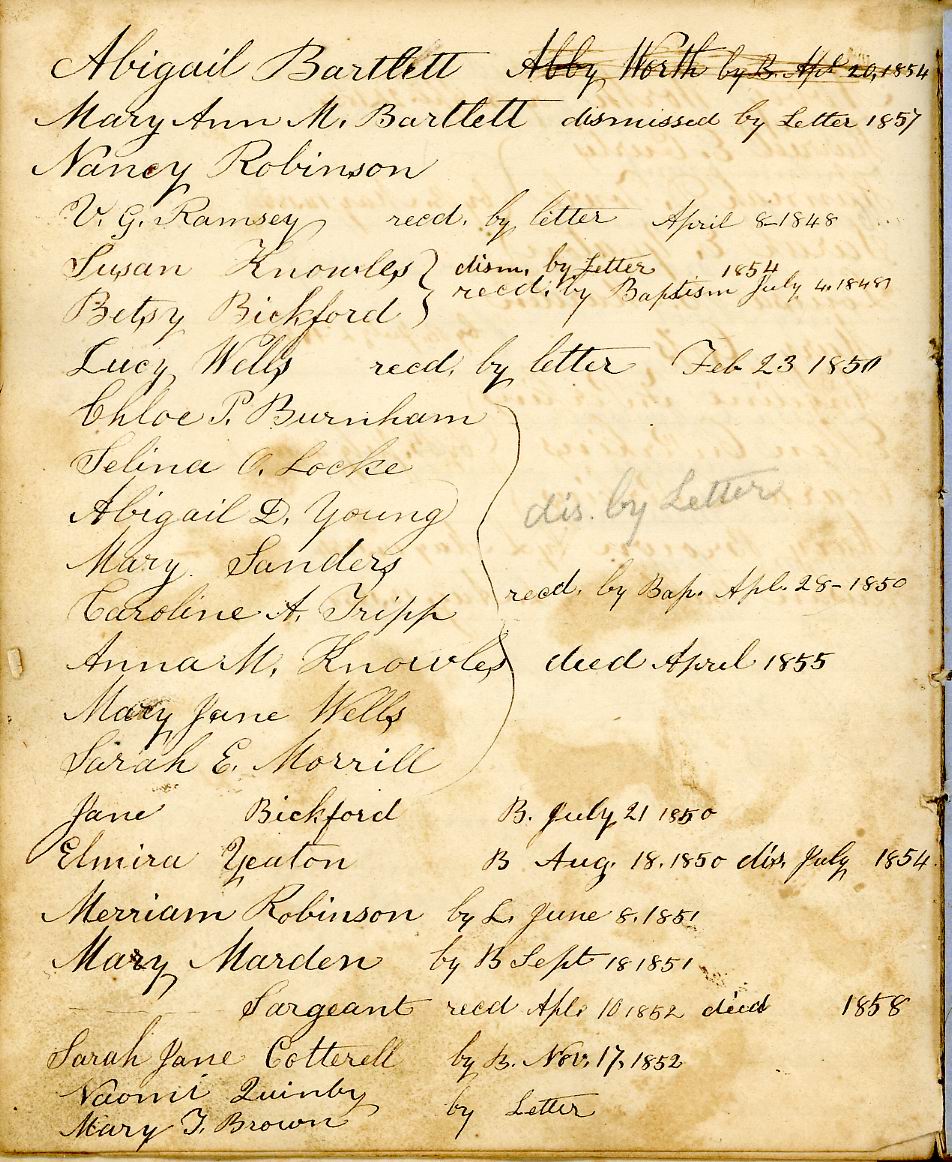 Abigail Bartlett Abby Worth by B. Apl 20, 1854
Mary Ann M. Bartlett dismissed by Letter 1857
Nancy Robinson
V. G. Ramsey recd. by letter April 8-1848
Susan Knowles dism. by Letter 1854
recd. by Baptism July 4. 1848
Betsy Bickford
Lucy Wells recd. by letter Feb 23 1850
Chloe P. Burnham
Selina O. Locke
Abigail D. Young dis. by Letter
Mary Sanders
recd. by Bap. Apl. 28-1850
Caroline A. Tripp
Anna M. Knowles died April 1855
Mary Jane Wells
Sarah E. Morrill
Jane Bickford B. July 21 1850
Elmira Yeaton B Aug. 18. 1850 dis. July 1854
Merriam Robinson by L. June 8. 1851
Mary Marden by B Sept 18 1851
Sargeant recd Apl. 10 1852 died 1858
Sarah Jane Cotterell by B. Nov. 17, 1852
Naomi Quinby
by Letter
Mary T. Brown